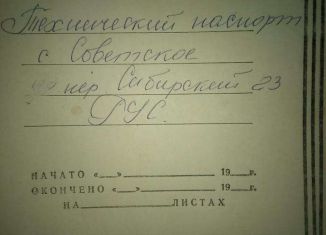 Технический паспорт
с Советское
пер. Сибирский 23
РУС.
НАЧАТО «__» ________ 19__г.
ОКОНЧЕНО «__» ________ 19__г.
НА____________ЛИСТАХ